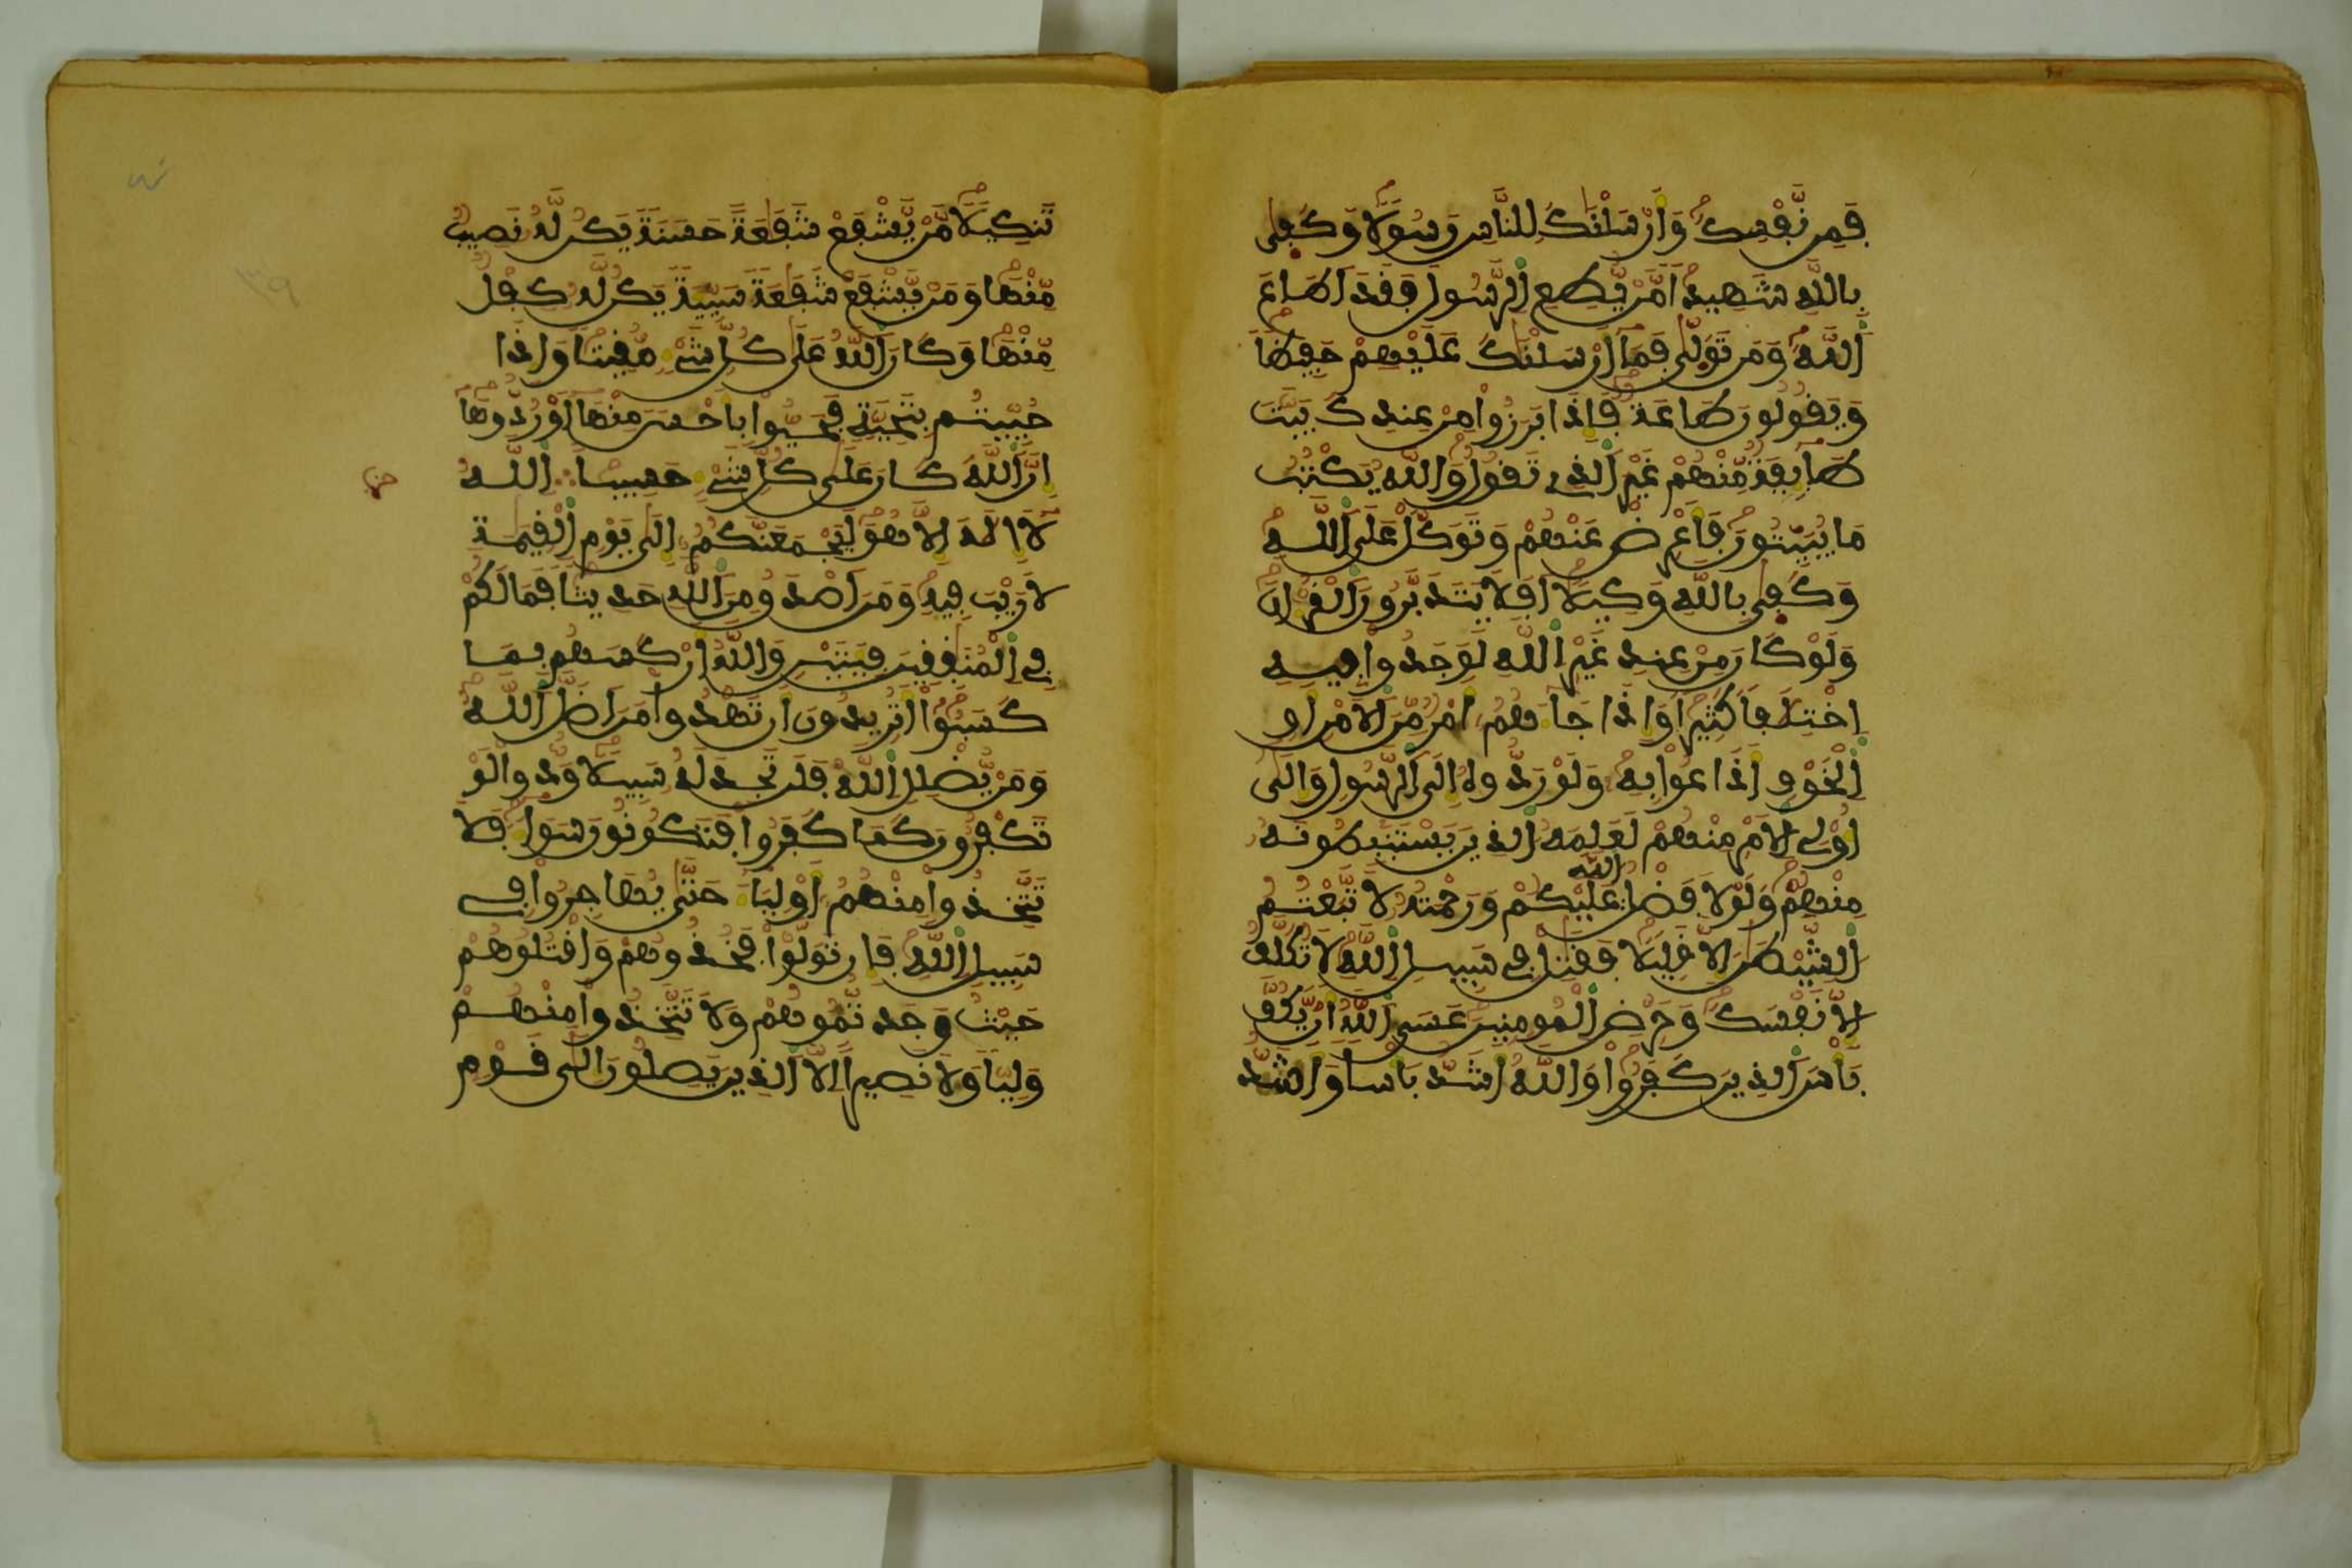 فمن نَّفْسِكَ وَأَرْسَلْنَكَ لِلنَّاسِ رَسُولًا وَكَفِى
بِاللَّهِ شَهِيدًا مَّنْ يُّطِعِ اِلرَّسُولَ فَقَدَ اَطَاعَ
اَللَّهَ وَمَن تَوَلِّى فَمَا أَرْسَلْنَكَ عَلَيْهِمْ حَفِيظًا
وَيَقُولُونَ طَاعَةٌ فَإِذَا بَرَزُواْ مِنْ عِندِكَ بَيَّتَ
طَآئِفَةٌ مِّنْهُمْ غَيْرَ اَلذِے تَقُولُ وَاللَّهُ يَكْتُبُ
مَا يُبَيِّتُونَ فَأَعْرِضْ عَنْهُمْ وَتَوَكَّلْ عَلَى اَللَّهِ
وَكَفِى بِاللَّهِ وَكِيلًا اَفَلَا يَتَدَبَّرُونَ اَلْقُرْانَ
وَلَوْ كَانَ مِنْ عِندِ غَيْرِ اِللَّهِ لَوَجَدُواْ فِيهِ
اِخْتِلَفًا كَثِيرًا وَإِذَا جَآءَهُمُ أَمْرٌ مِّنَ اَلَامْنِ أَوِ
اِلْخَوْفِ أَذَاعُواْ بِهِ وَلَوْ رَدُّوهُ إِلَى اَلرَّسُولِ وَإِلَى
أُوْلِى اِلَامْرِ مِنْهُمْ لَعَلِمَهُ اُلذِينَ يَسْتَنبِطُونَهُ
مِنْهُمْ وَلَوْلَا فَضْلُ اُللَّهِ عَلَيْكُمْ وَرَحْمَتُهُ لَاتَّبَعْتُمُ
اُلشَّيْطَنَ إِلَّا قَلِيلًا فَقَتِلْ فِى سَبِيلِ اِللَّهِ لَا تُكَلَّفُ
إِلَّا نَفْسَكَ وَحَرِّضِ اِلْمُومِنِينَ عَسَى اَللَّهُ أَنْ يَّكُفَّ
بَأْسَ اَلذِينَ كَفَرُواْ وَاللَّهُ أَشَدُّ بَأْسًا وَأَشَدُّ
تَنكِيلًا مَّنْ يَّشْفَعْ شَفَعَةً حَسَنَةً يَكُن لَّهُ نَصِيبٌ
مِّنْهَا وَمَنْ يَّشْفَعْ شَفَعَةً سَيِّئَةً يَكُن لَّهُ كِفْلٌ
مِّنْهَا وَكَانَ اَللَّهُ عَلَى كُلِّ شَےْءٍ مُّقِيتًا وَإِذَا
حُيِّيتُم بِتَحِيَّةٍ فَحَيُّواْ بِأَحْسَنَ مِنْهَا أَوْ رُدُّوهَا
إِنَّ اَللَّهَ كَانَ عَلَى كُلِّ شَےْءٍ حَسِيبًا ∴ اِللَّهُ
لَا إِلَهَ إِلَّا هُوَ لَيَجْمَعَنَّكُمُ إِلَى يَوْمِ اِلْقِيَمَةِ
لَا رَيْبَ فِيهِ وَمَنَ اَصْدَقُ مِنَ اَللَّهِ حَدِيثًا فَمَا لَكُمْ
فِے اِلْمُنَفِقِينَ فِيَتَيْنِ وَاللَّهُ أَرْكَسَهُم بِمَا
كَسَبُواْ أَتُرِيدُونَ أَن تَهْدُواْ مَنَ اَضَلَّ اَللَّهُ
وَمَنْ يُّضْلِلِ اِللَّهُ فَلَن تَجِدَ لَهُ سَبِيلًا وَدُّواْ لَوْ
تَكْفُرُونَ كَمَا كَفَرُواْ فَتَكُونُونَ سَوَآءً فَلَا
تَتَّخِذُواْ مِنْهُمُ أَوْلِيَآءَ حَتَّى يُهَاجِرُواْ فِے
سَبِيلِ اِللَّهِ فَإِن تَوَلَّوْاْ فَخُذُوهُمْ وَاقْتُلُوهُمْ
حَيْثُ وَجَدتُّمُوهُمْ وَلَا تَتَّخِذُواْ مِنْهُمْ
وَلِيًّا وَلَا نَصِيرًا إِلَّا اَلذِينَ يَصِلُونَ إِلَى قَوْمٍ
حزب
٣٩